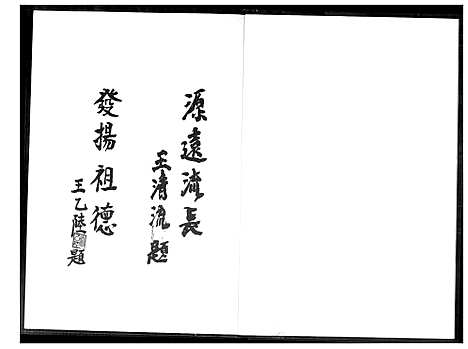 源遠流長
王清流題
發揚祖德
王乙陸題